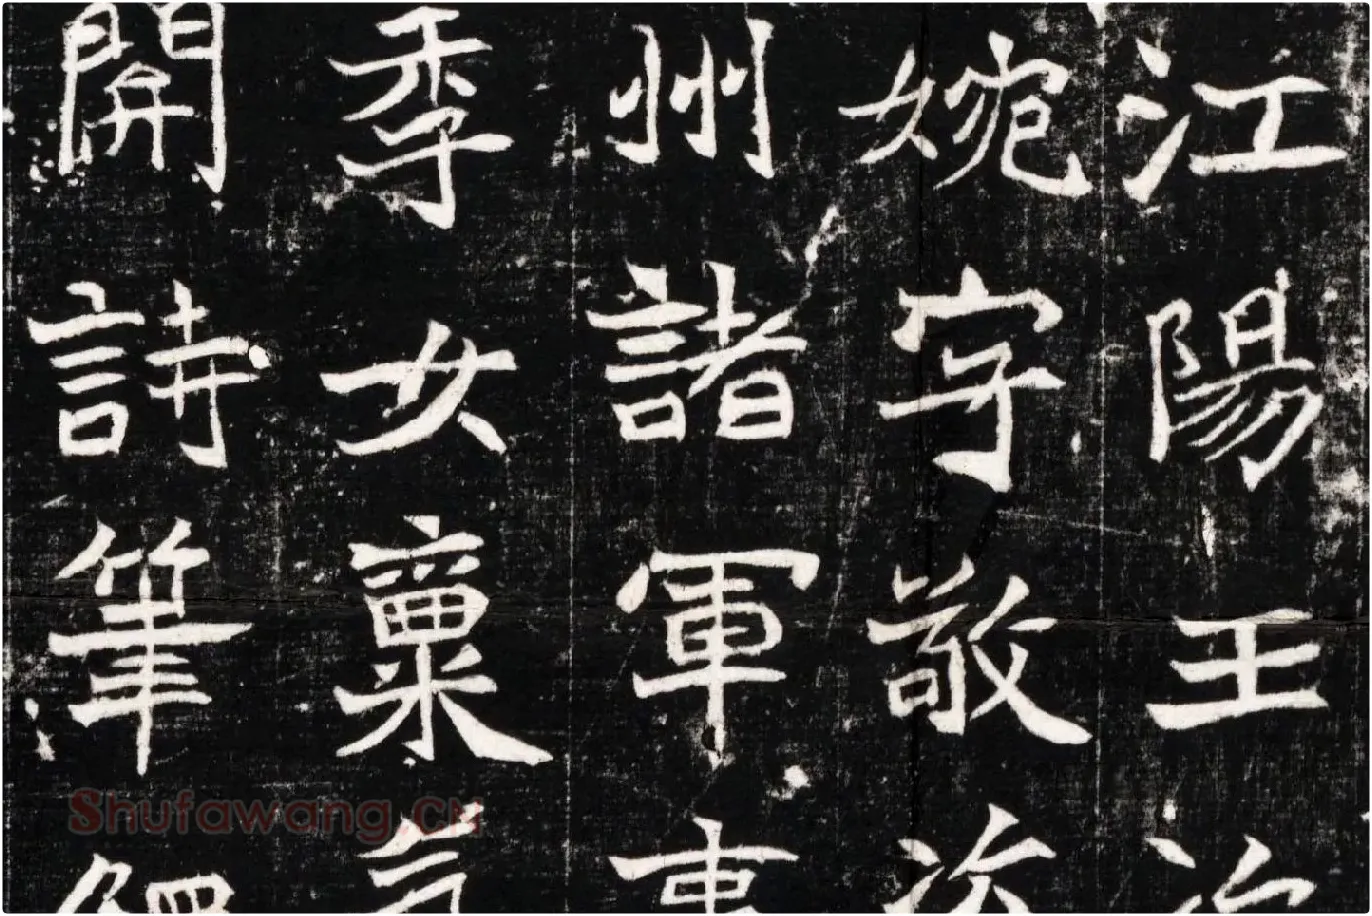 江陽王次
婉字敬姿
州諸軍事
季女稟氣
開詩筆
Shufawang.CN